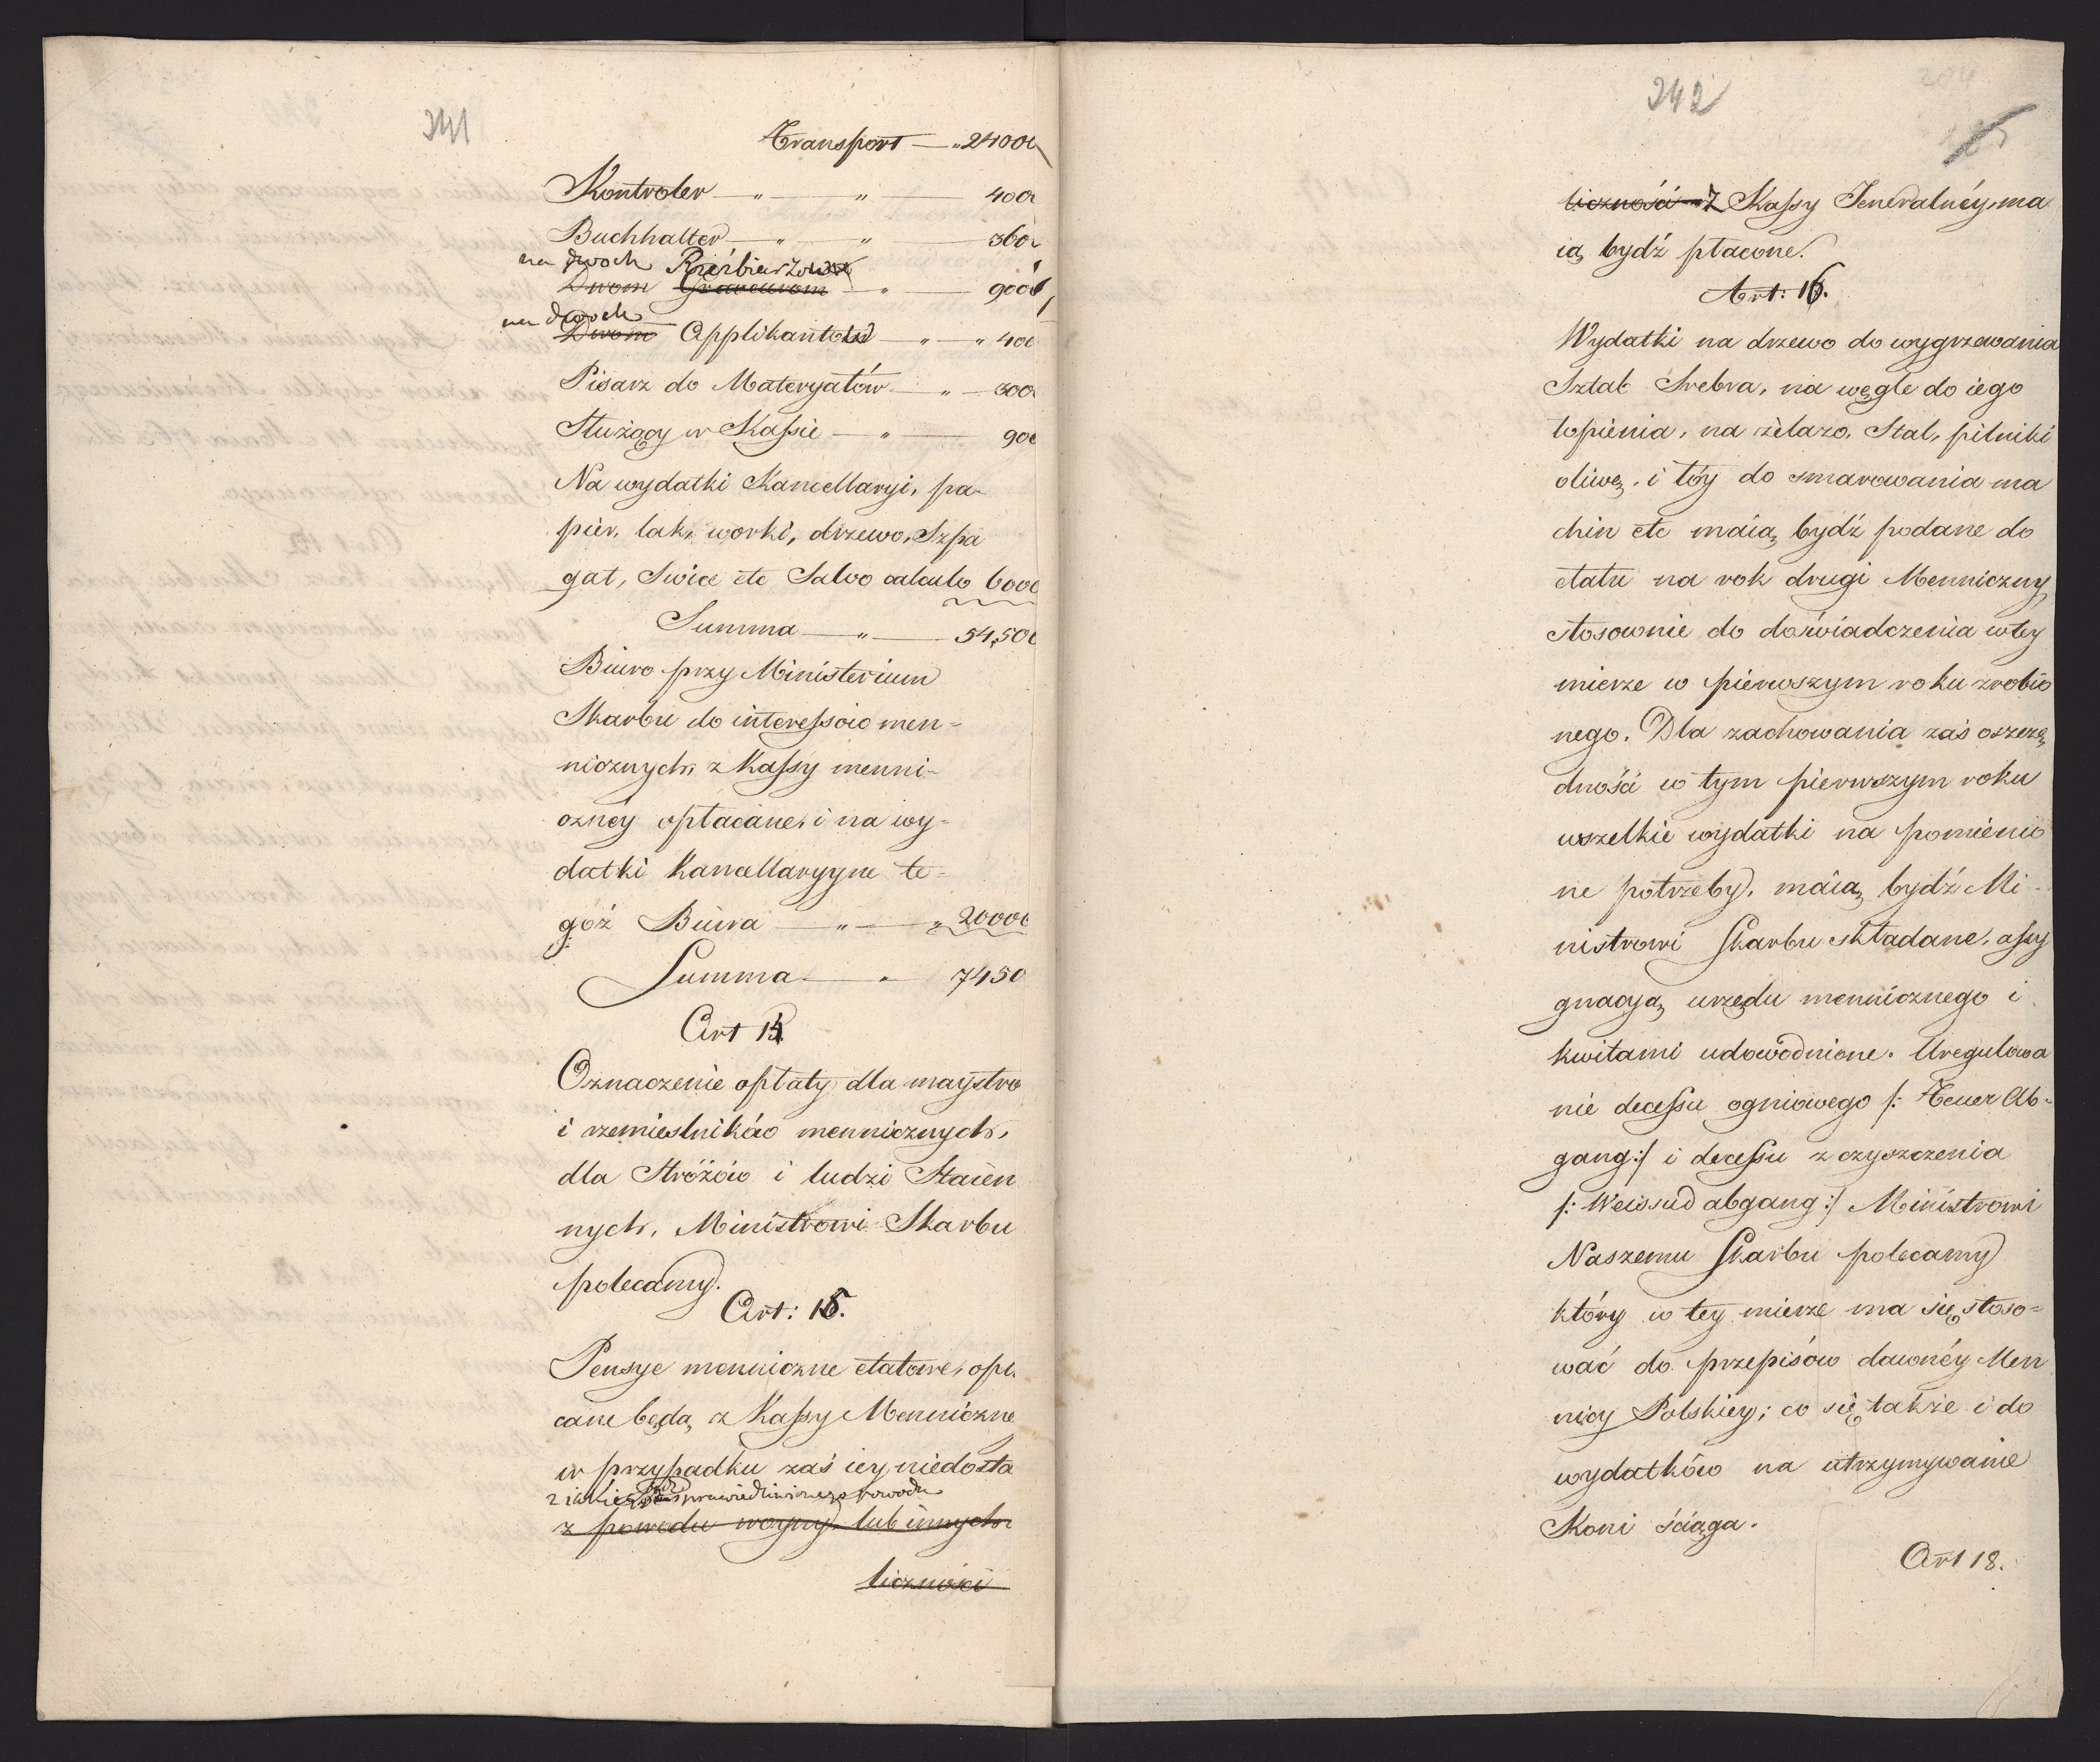 241
Transport — „ 24000
Kontroler — „ — „ — 400
Buchhalter — „ — „ — 360
na dwoch Rzeźbiarzow
Dwom Graveurom — „ — 900
na dwoch
Dwom Applikantow — „ — „ 400
Pisarz do Materyałów — „ — 300
Służący w Kassie — „ — 900
Na wydatki Kancellaryi, pa-
pier, lak, worki, drzewo, Szpa
gat, Swice etc Salvo calculo 6000
Summa — „ — 54,500
Biuro przy Ministerium
Skarbu do interessów men-
nicznych, z Kassy menni-
czney opłacane, i na wy-
datki Kancellaryyne te-
góż Biura — „ — „ 20000
Summa — „ 7450
Art 15.
Oznaczenie opłaty dla maystro
i rzemieslników mennicznych,
dla Stróżów i ludzi Staien
nych, Ministrowi Skarbu
polecamy.
Art: 16.
Pensye menniczne etatowe, opła
cane będą z Kassy Menniczne
w przypadku zaś iey niedosta
z iakiego usprawiedliwionego powodu
z powodu woyny lub innych
liczności
242
liczność z Kassy Jeneralnéy, ma
ią bydź płacone.
Art: 16.
Wydatki na drzewo do wygrzewania
Sztab Srebra, na węgle do iego
topienia, na żelazo, Stal, pilniki
oliwę, i łóy do smarowania ma
chin etc maią bydź podane do
etatu na rok drugi Menniczny,
stosownie do doświadczenia w tey
mierze w pierwszym roku zrobio
nego. Dla zachowania zaś oszczę
dności w tym pierwszym roku
wszelkie wydatki na pomienio
ne potrzeby, maią bydź Mi-
nistrowi Skarbu składane, assy
gnacyą urzędu mennicznego i
kwitami udowodnione. Uregulowa
nie decessu ogniowego /: Feuer Ab-
gang :/ i decessu z czyszczenia
/: Weissud abgang :/ Ministrowi
Naszemu Skarbu polecamy
który w tey mierze ma się stoso-
wać do przepisów dawnéy Men
nicy Polskiey; co się także i do
wydatków na utrzymywanie
Koni ściąga.
Art 18.